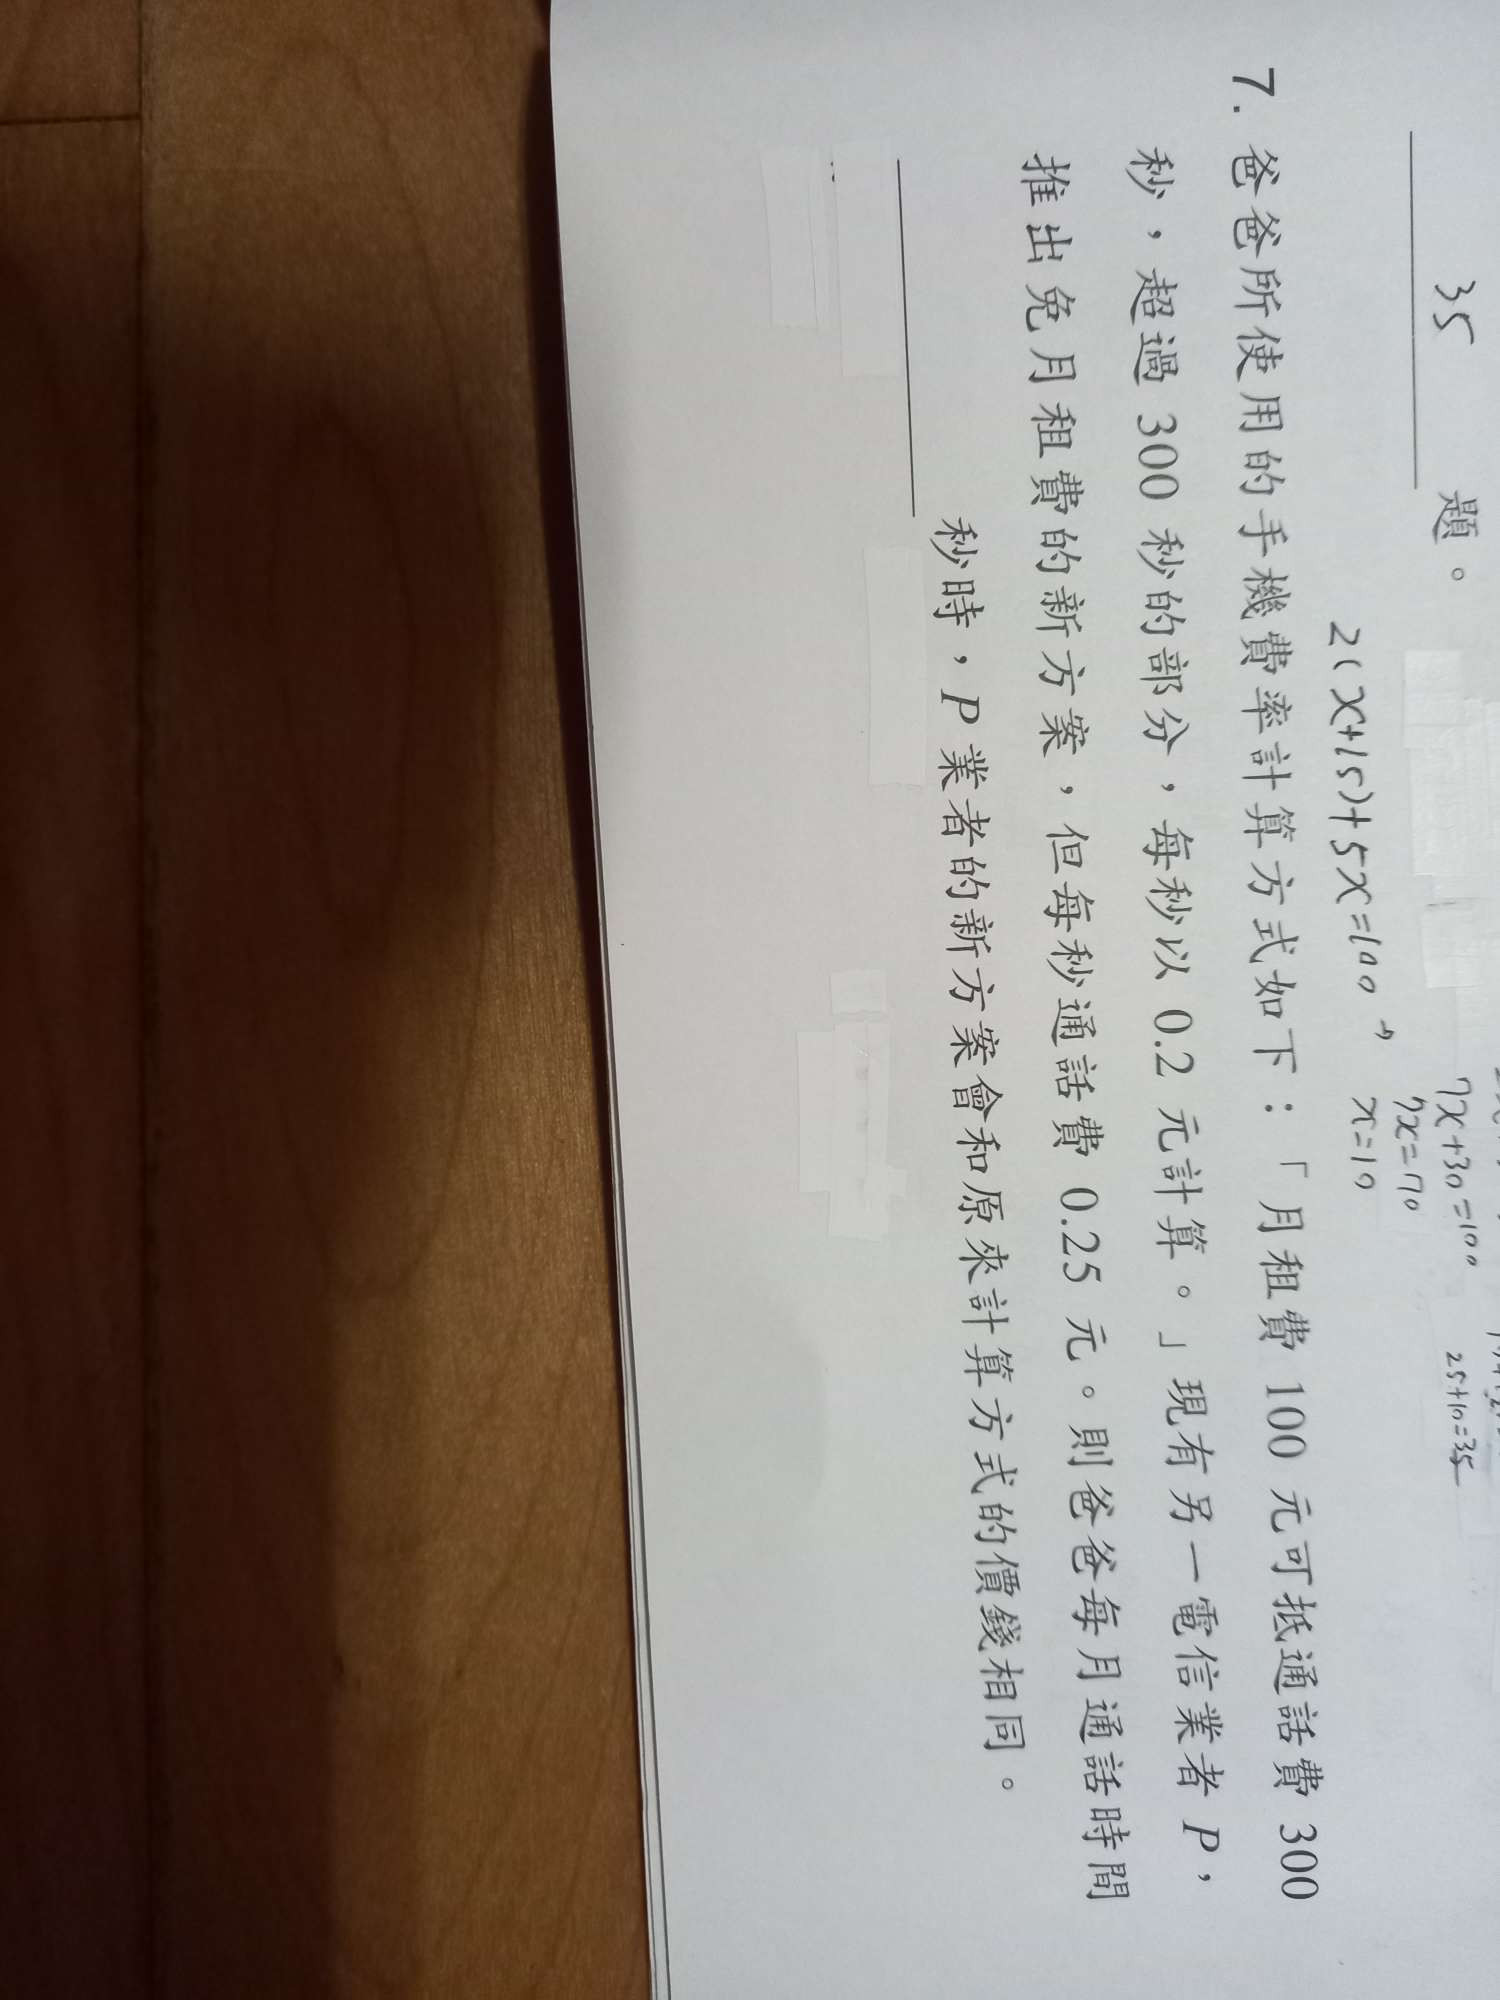 35 題。
7x+30=100
7x=70
25+10=35
2(x+15)+5x=100 → x=10
7. 爸爸所使用的手機費率計算方式如下：「月租費 100 元可抵通話費 300
秒，超過 300 秒的部分，每秒以 0.2 元計算。」現有另一電信業者 P，
推出免月租費的新方案，但每秒通話費 0.25 元。則爸爸每月通話時間
秒時，P 業者的新方案會和原來計算方式的價錢相同。